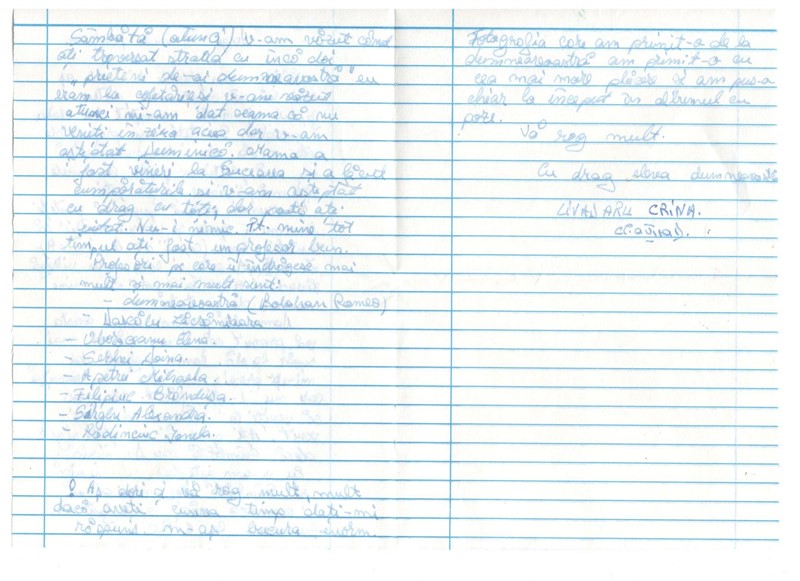 Sâmbătă (atunci) v-am văzut când
ați traversat strada cu încă doi
„prieteni de-ai dumneavoastră" eu
eram la cofetărie și v-am văzut
atunci mi-am dat seama că nu
veniți în țăra aceea dar v-am
așteptat Duminică, mama a
fost vineri la Suceava și a făcut
cumpărăturile și v-am așteptat
cu drag cu toții, dar poate ați
uitat. Nu-i nimic. Pt. mine tot
timpul ați fost un profesor bun.
Profesori pe care îi îndrăgesc mai
mult și mai mult sunt:
- dumneavoastră (Bolohan Romeo)
- Dascălu Lăcrămioara
- Obor Elena.
- Doina.
- Apetrii Mihaela.
- Filipiuc Brîndușa.
- Sîrghi Alexandra.
- Radinciuc Ionela.
! Aș dori și vă rog mult, mult
dacă aveți cumva timp dați-mi
răspuns m-aș bucura enorm.
Fotografia care am primit-o de la
dumneavoastră am primit-o cu
cea mai mare plăcere și am pus-o
chiar la început în albumul cu
poze.
Vă rog mult.
Cu drag eleva dumneavoastră
LIVADARU CRINA.